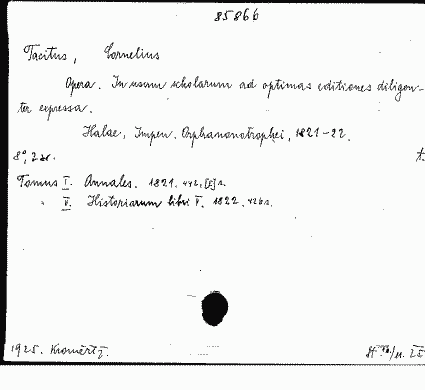 85866
Tacitus, Cornelius
Opera. In usum scholarum ad optimas editiones diligen-
ter expressa.
Halae, Impen. Orphanonotrophei, 1821-22.
8°, 2 t.
Tomus I. Annales. 1821. 442, [2] s.
" II. Historiarum libri V. 1822. 426 s.
1925. Kroměříž.